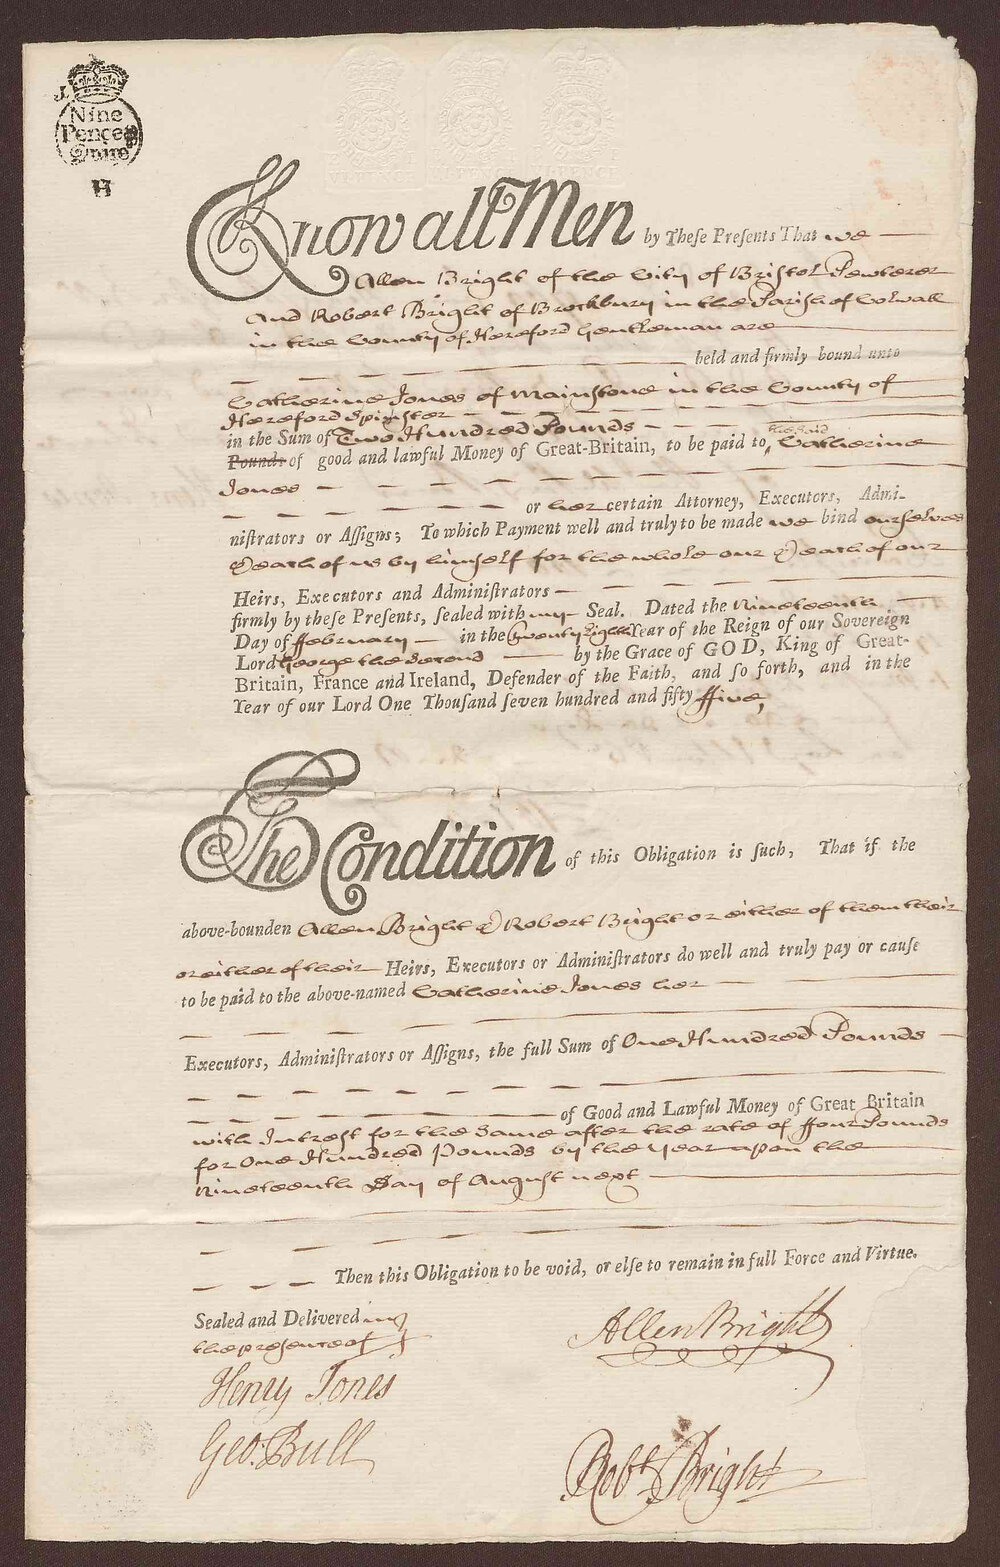 J.
Nine
Pence
Quire
H
VI PENCE VI PENCE VI PENCE
Know all Men by These Presents That we
Allen Bright of the City of Bristol Pewterer
And Robert Bright of Brockbury in the Parish of Colwall
in the County of Hereford Gentleman are
held and firmly bound unto
Catherine Jones of Mainstone in the County of
Hereford Spinster
in the Sum of Two Hundred Pounds
the said
Pounds of good and lawful Money of Great-Britain, to be paid to Catherine
Jones
or her certain Attorney, Executors, Admi-
nistrators or Assigns; To which Payment well and truly to be made we bind ourselves
& each of us by himself for the whole our & each of our
Heirs, Executors and Administrators
firmly by these Presents, sealed with my Seal. Dated the Nineteenth
Day of ffebruary in the Twenty Eighth Year of the Reign of our Sovereign
Lord George the Second by the Grace of GOD, King of Great-
Britain, France and Ireland, Defender of the Faith, and so forth, and in the
Year of our Lord One Thousand seven hundred and fifty ffive,
The Condition of this Obligation is such, That if the
above-bounden Allen Bright & Robert Bright or either of them their
or either of their Heirs, Executors or Administrators do well and truly pay or cause
to be paid to the above-named Catherine Jones her
Executors, Administrators or Assigns, the full Sum of One Hundred Pounds
of Good and Lawful Money of Great Britain
with Intrest for the Same after the rate of ffour Pounds
for One Hundred Pounds by the Year upon the
Nineteenth Day of August next
Then this Obligation to be void, or else to remain in full Force and Virtue.
Sealed and Delivered in
the presence of
Allen Bright
Henry Jones
Geo: Bull
Robt. Bright